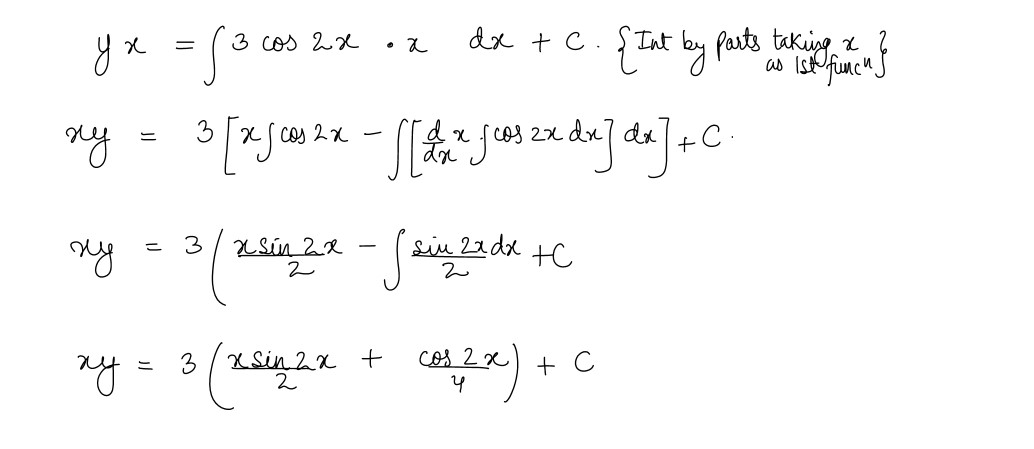 yx = ∫ 3 cos 2x · x dx + C. {Int by parts taking x as 1st funcⁿ}
xy = 3 [x∫cos 2x − ∫[d/dx x ∫cos 2x dx] dx] + C.
xy = 3 ( x sin 2x / 2 − ∫ sin 2x dx / 2 + C
xy = 3 ( x sin 2x / 2 + cos 2x / 4 ) + C